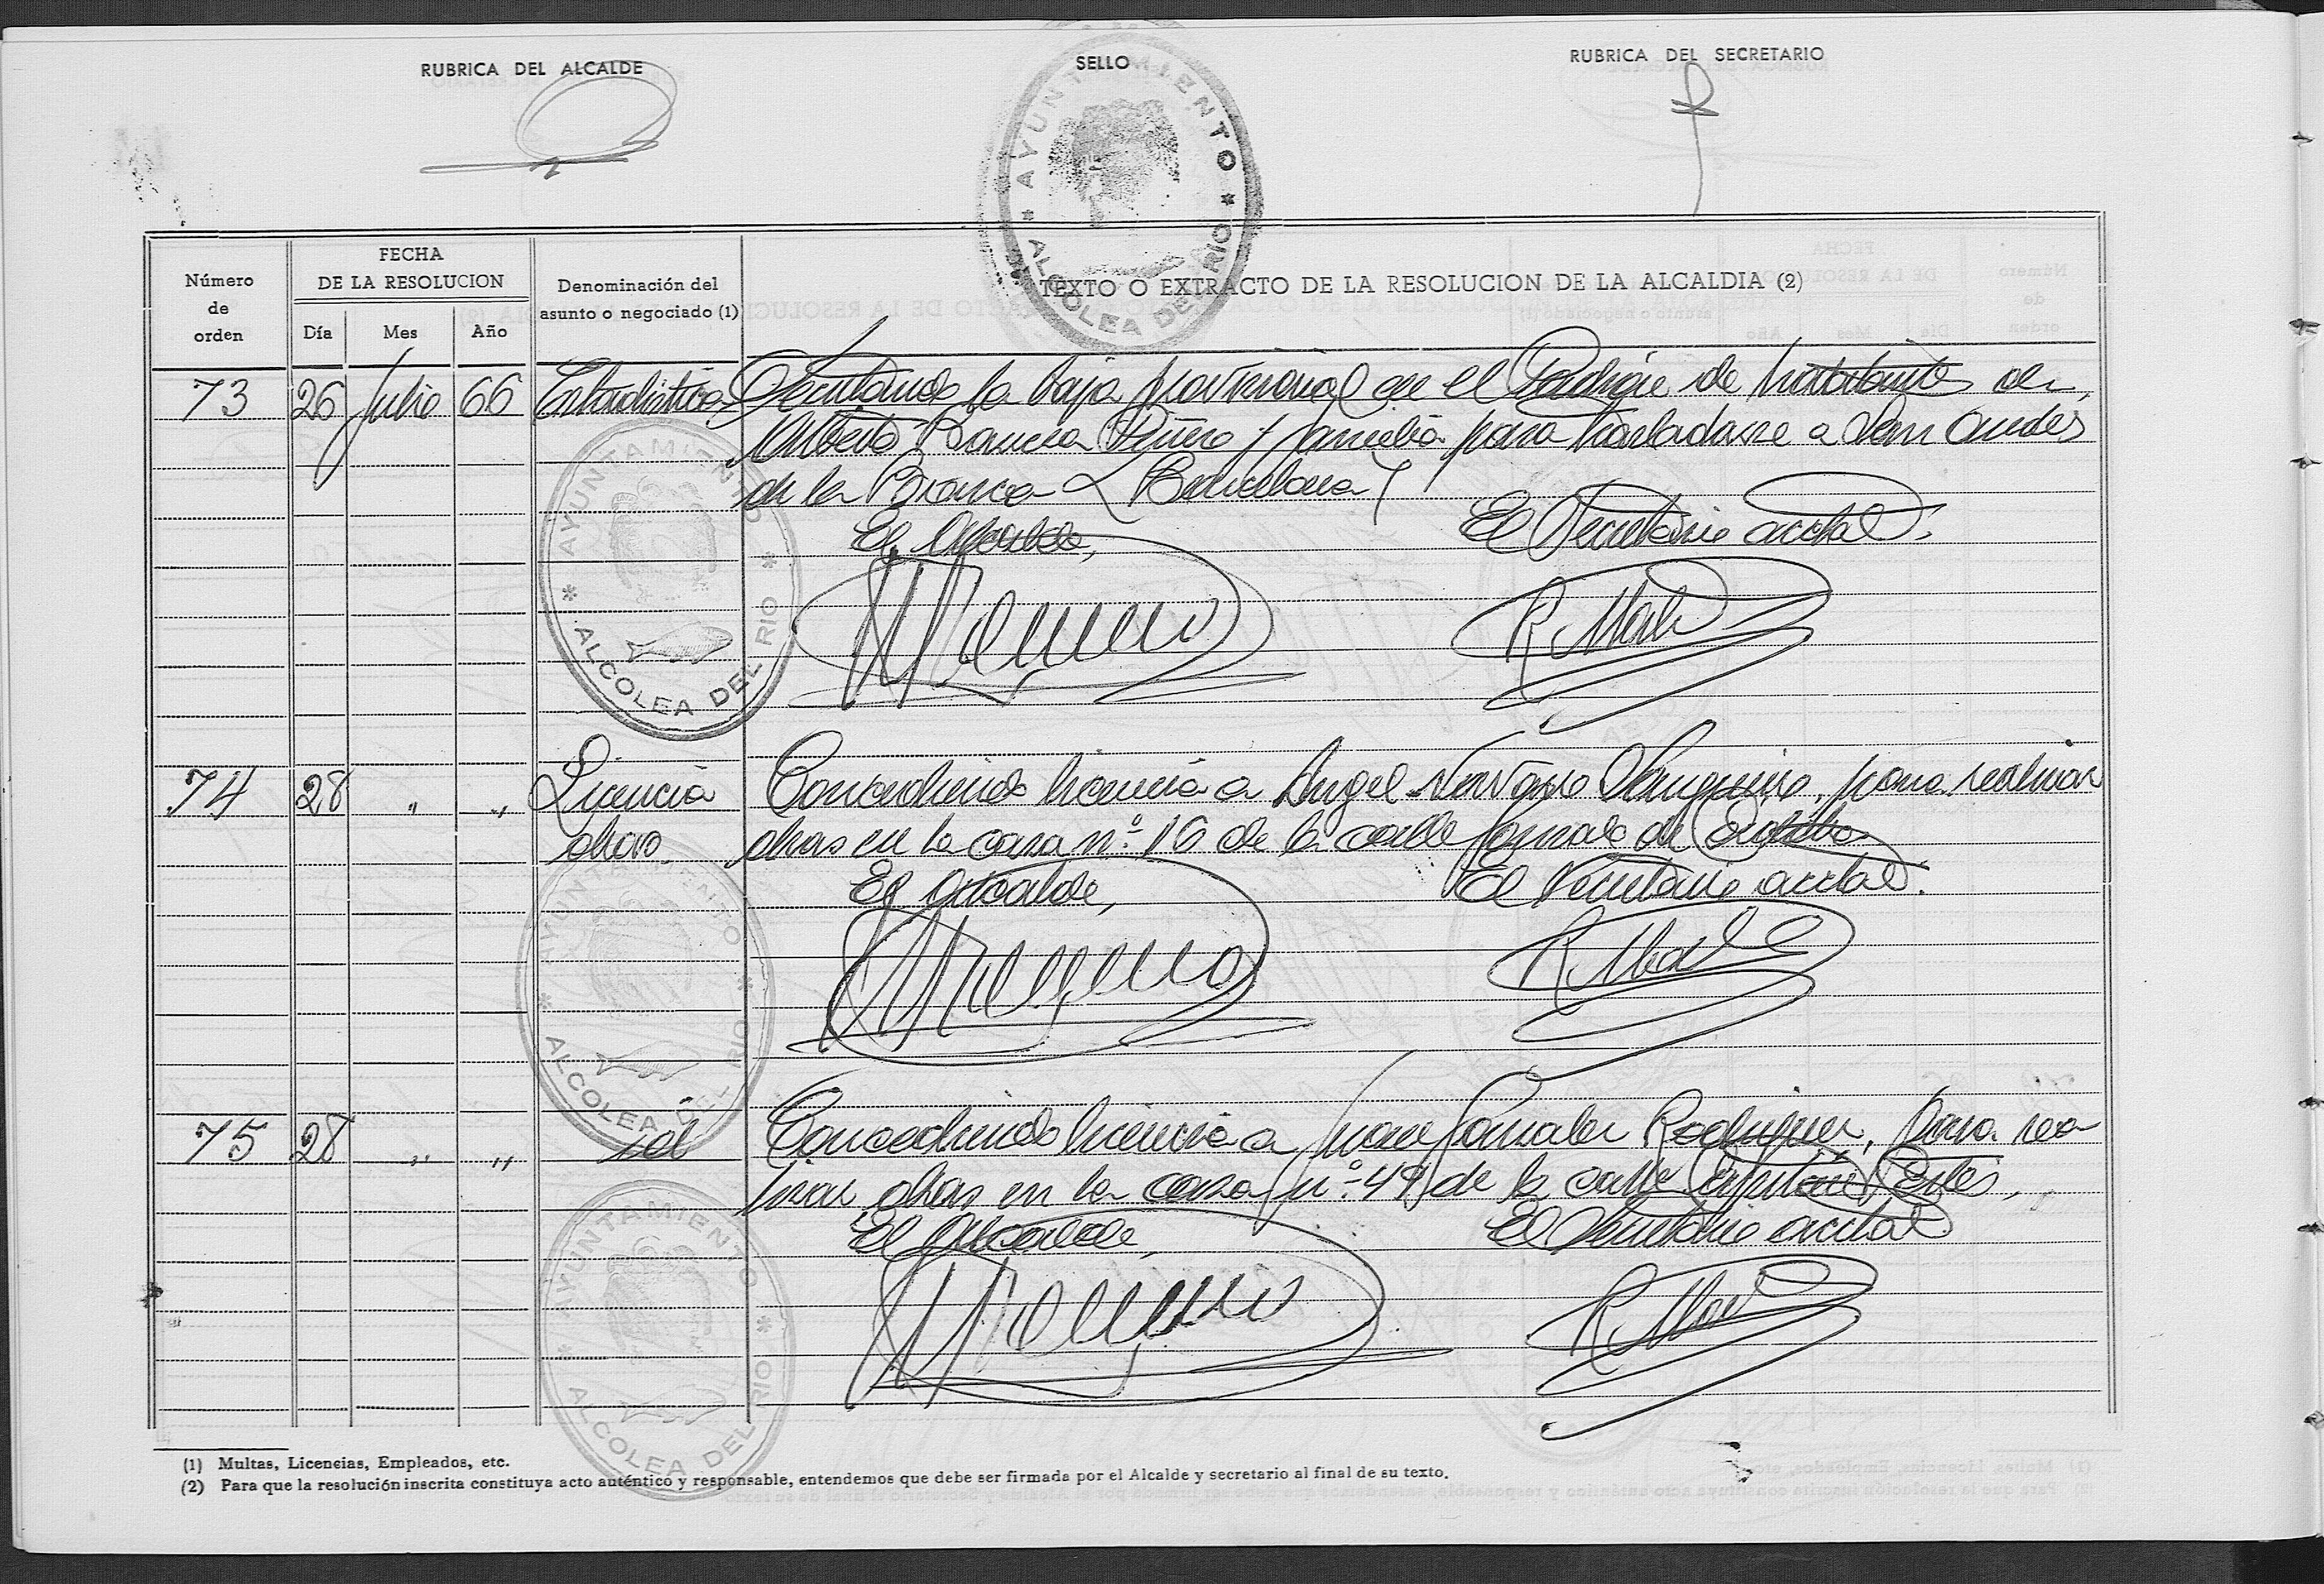 RUBRICA DEL ALCALDE
SELLO
RUBRICA DEL SECRETARIO
AYUNTAMIENTO * ALCOLEA DEL RIO *
Número de orden
FECHA DE LA RESOLUCION
Día Mes Año
Denominación del asunto o negociado (1)
TEXTO O EXTRACTO DE LA RESOLUCION DE LA ALCALDIA (2)
73 26 Julio 66 Estadística Decretando la baja provisional en el Padrón de habitantes de
Alberto y familia para trasladarse a San
de la Barca (Barcelona)
El Alcalde, El Secretario acctal.
AYUNTAMIENTO * ALCOLEA DEL RIO *
74 28 " " Licencia Concediendo licencia a Angel Navarro para realizar
obras obras en la casa nº 16 de la calle Gonzalo de
El Alcalde, El Secretario acctal.
AYUNTAMIENTO * ALCOLEA DEL RIO *
75 28 " " id Concediendo licencia a Gonzalez Rodriguez, para rea
lizar obras en la casa nº 49 de la calle Capitan
El Alcalde, El Secretario acctal
AYUNTAMIENTO * ALCOLEA DEL RIO *
(1) Multas, Licencias, Empleados, etc.
(2) Para que la resolución inscrita constituya acto auténtico y responsable, entendemos que debe ser firmada por el Alcalde y secretario al final de su texto.